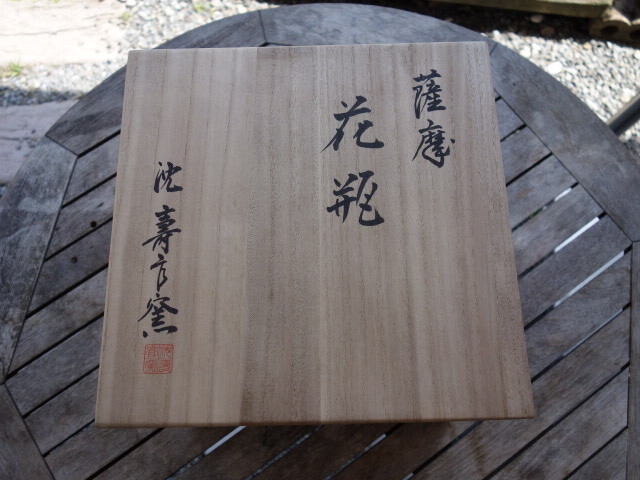 薩摩
花瓶
沈壽官窯